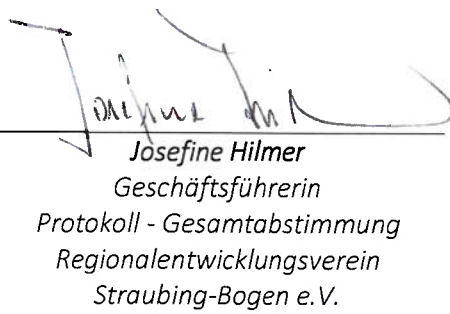 Josefine Hilmer
Geschäftsführerin
Protokoll - Gesamtabstimmung
Regionalentwicklungsverein
Straubing-Bogen e.V.